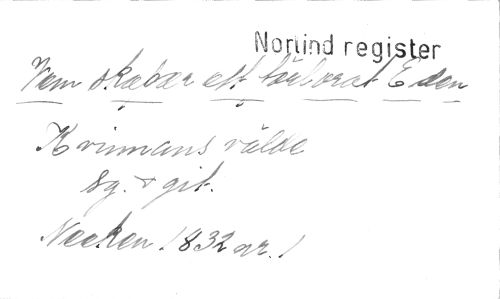 Norlind register
Vem skapar ett förlorat Eden
Kvinnans välde
sg. + git.
Necken 1832 nr. 1